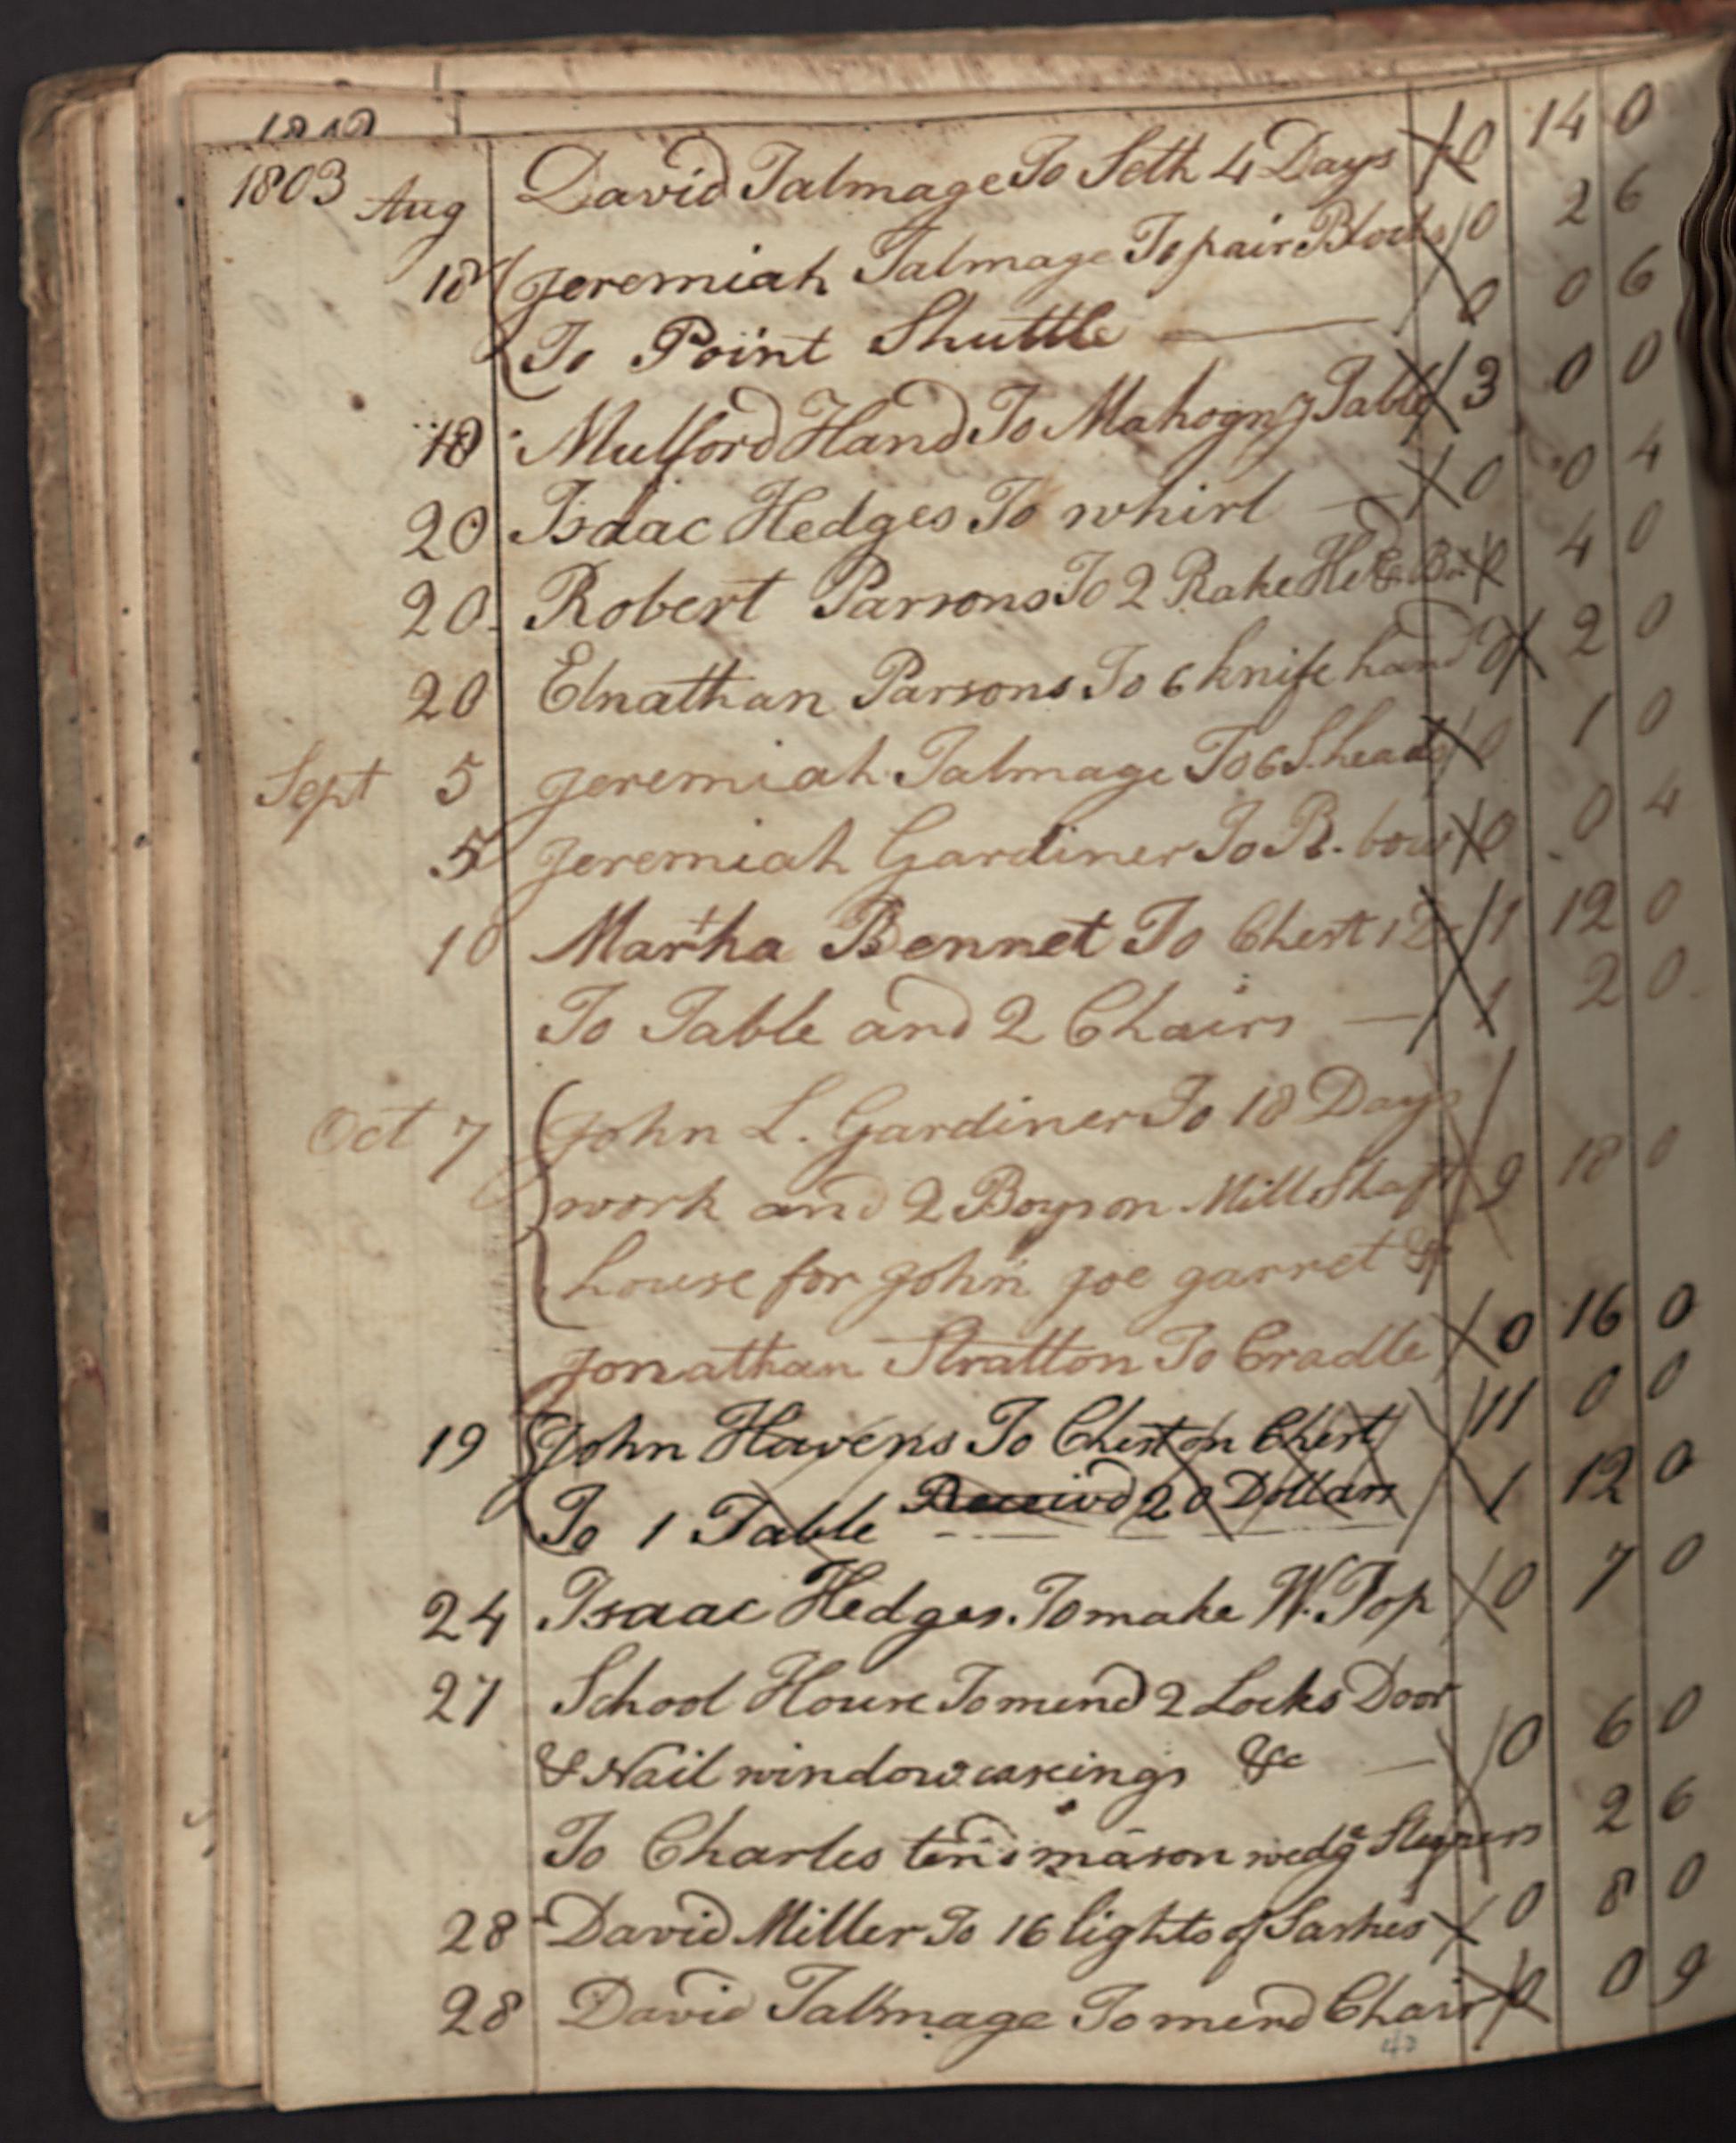 1803 Aug David Talmage To Seth 4 Days 0 14 0
18 Jeremiah Talmage To pair Blocks 0 2 6
To Point Shuttle 0 0 6
18 Mulford Hand To Mahogny Table 3 0 0
20 Isaac Hedges To whirl 0 0 4
20 Robert Parsons To 2 Rake He 0 4 0
20 Elnathan Parsons To 6 knife hand 0 2 0
Sept 5 Jeremiah Talmage To 6 S. heads 0 1 0
5 Jeremiah Gardiner To R. bow 0 0 4
10 Martha Bennet To Chest 1 1 12 0
To Table and 2 Chairs 1 2 0
Oct 7 John L. Gardiner To 18 Days
work and 2 Boys on Mill Shaft 9 18 0
house for John Joe garret &
Jonathan Stratton To Cradle 0 16 0
19 John Havens To Chest on Chest 11 0 0
To 1 Table Receivd 20 Dollars 1 12 0
24 Isaac Hedges. To make W. Top 0 7 0
27 School House To mend 2 Locks Door
& Nail window caseings &c 0 6 0
To Charles mason wedg 2 6
28 David Miller To 16 lights of Sashes 0 8 0
28 David Talmage To mend Chair 0 0 9